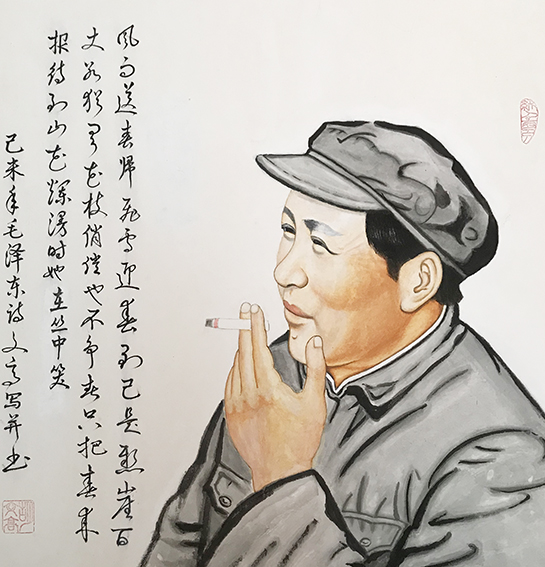 风雨送春归飞雪迎春到已是悬崖百
丈冰犹有花枝俏俏也不争春只把春来
报待到山花爛漫时她在丛中笑
己未年毛泽东诗文高写并书